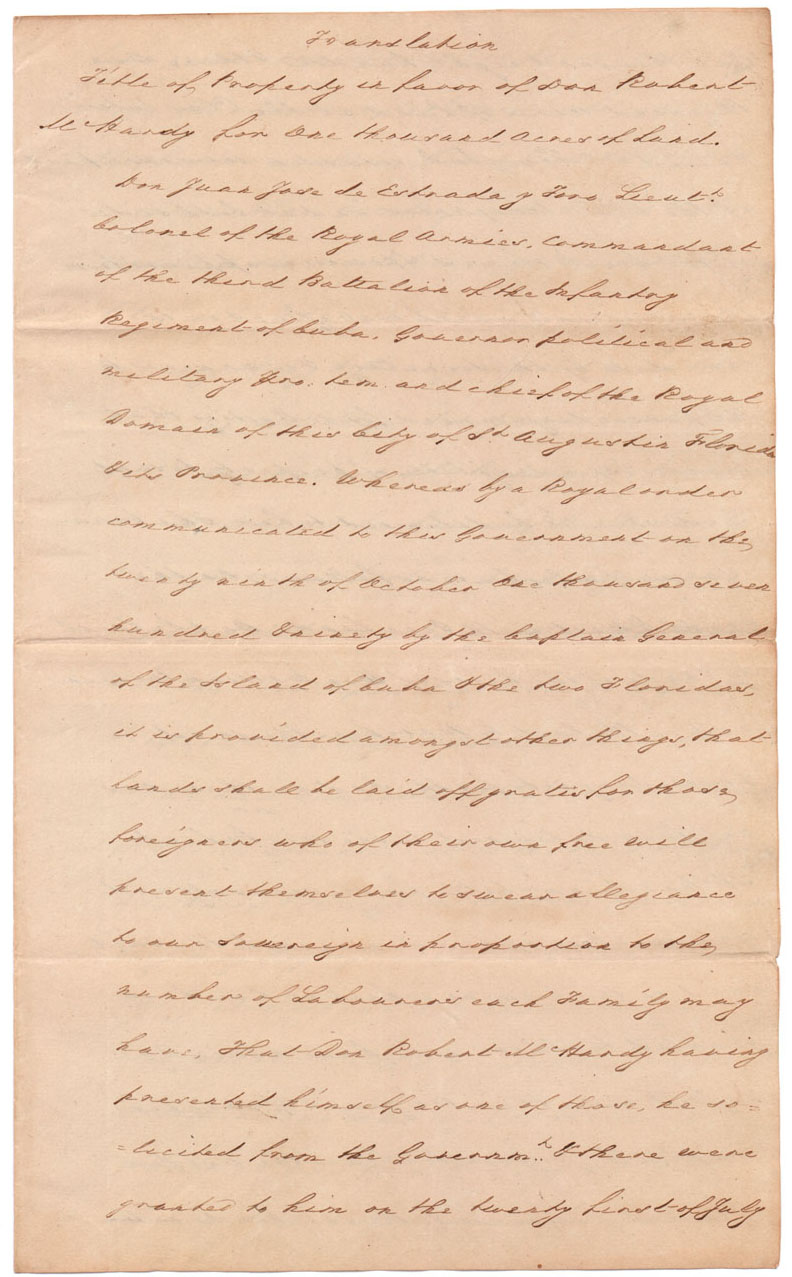 Translation
Title of Property in favor of Don Robert
McHardy for One thousand Acres of Land.
Don Juan Jose de Estrada y Toro Lieut.t
Colonel of the Royal Armies, Commandant
of the third Battalion of the Infantry
Regiment of Cuba, Governor political and
military Pro. tem. and chief of the Royal
Domain of this City of St Augustin Florida
& its Province. Whereas by a Royal order
communicated to this Government on the
twenty ninth of October One thousand seven
hundred & ninety by the Captain General
of the Island of Cuba & the two Floridas,
it is provided amongst other things, that
lands shall be laid off gratis for those
foreigners who of their own free will
present themselves to swear allegiance
to our Sovereign in proportion to the
number of Labourers each Family may
have, That Don Robert McHardy having
presented himself as one of those, he so=
=licited from the Governm.t & there were
granted to him on the twenty first of July